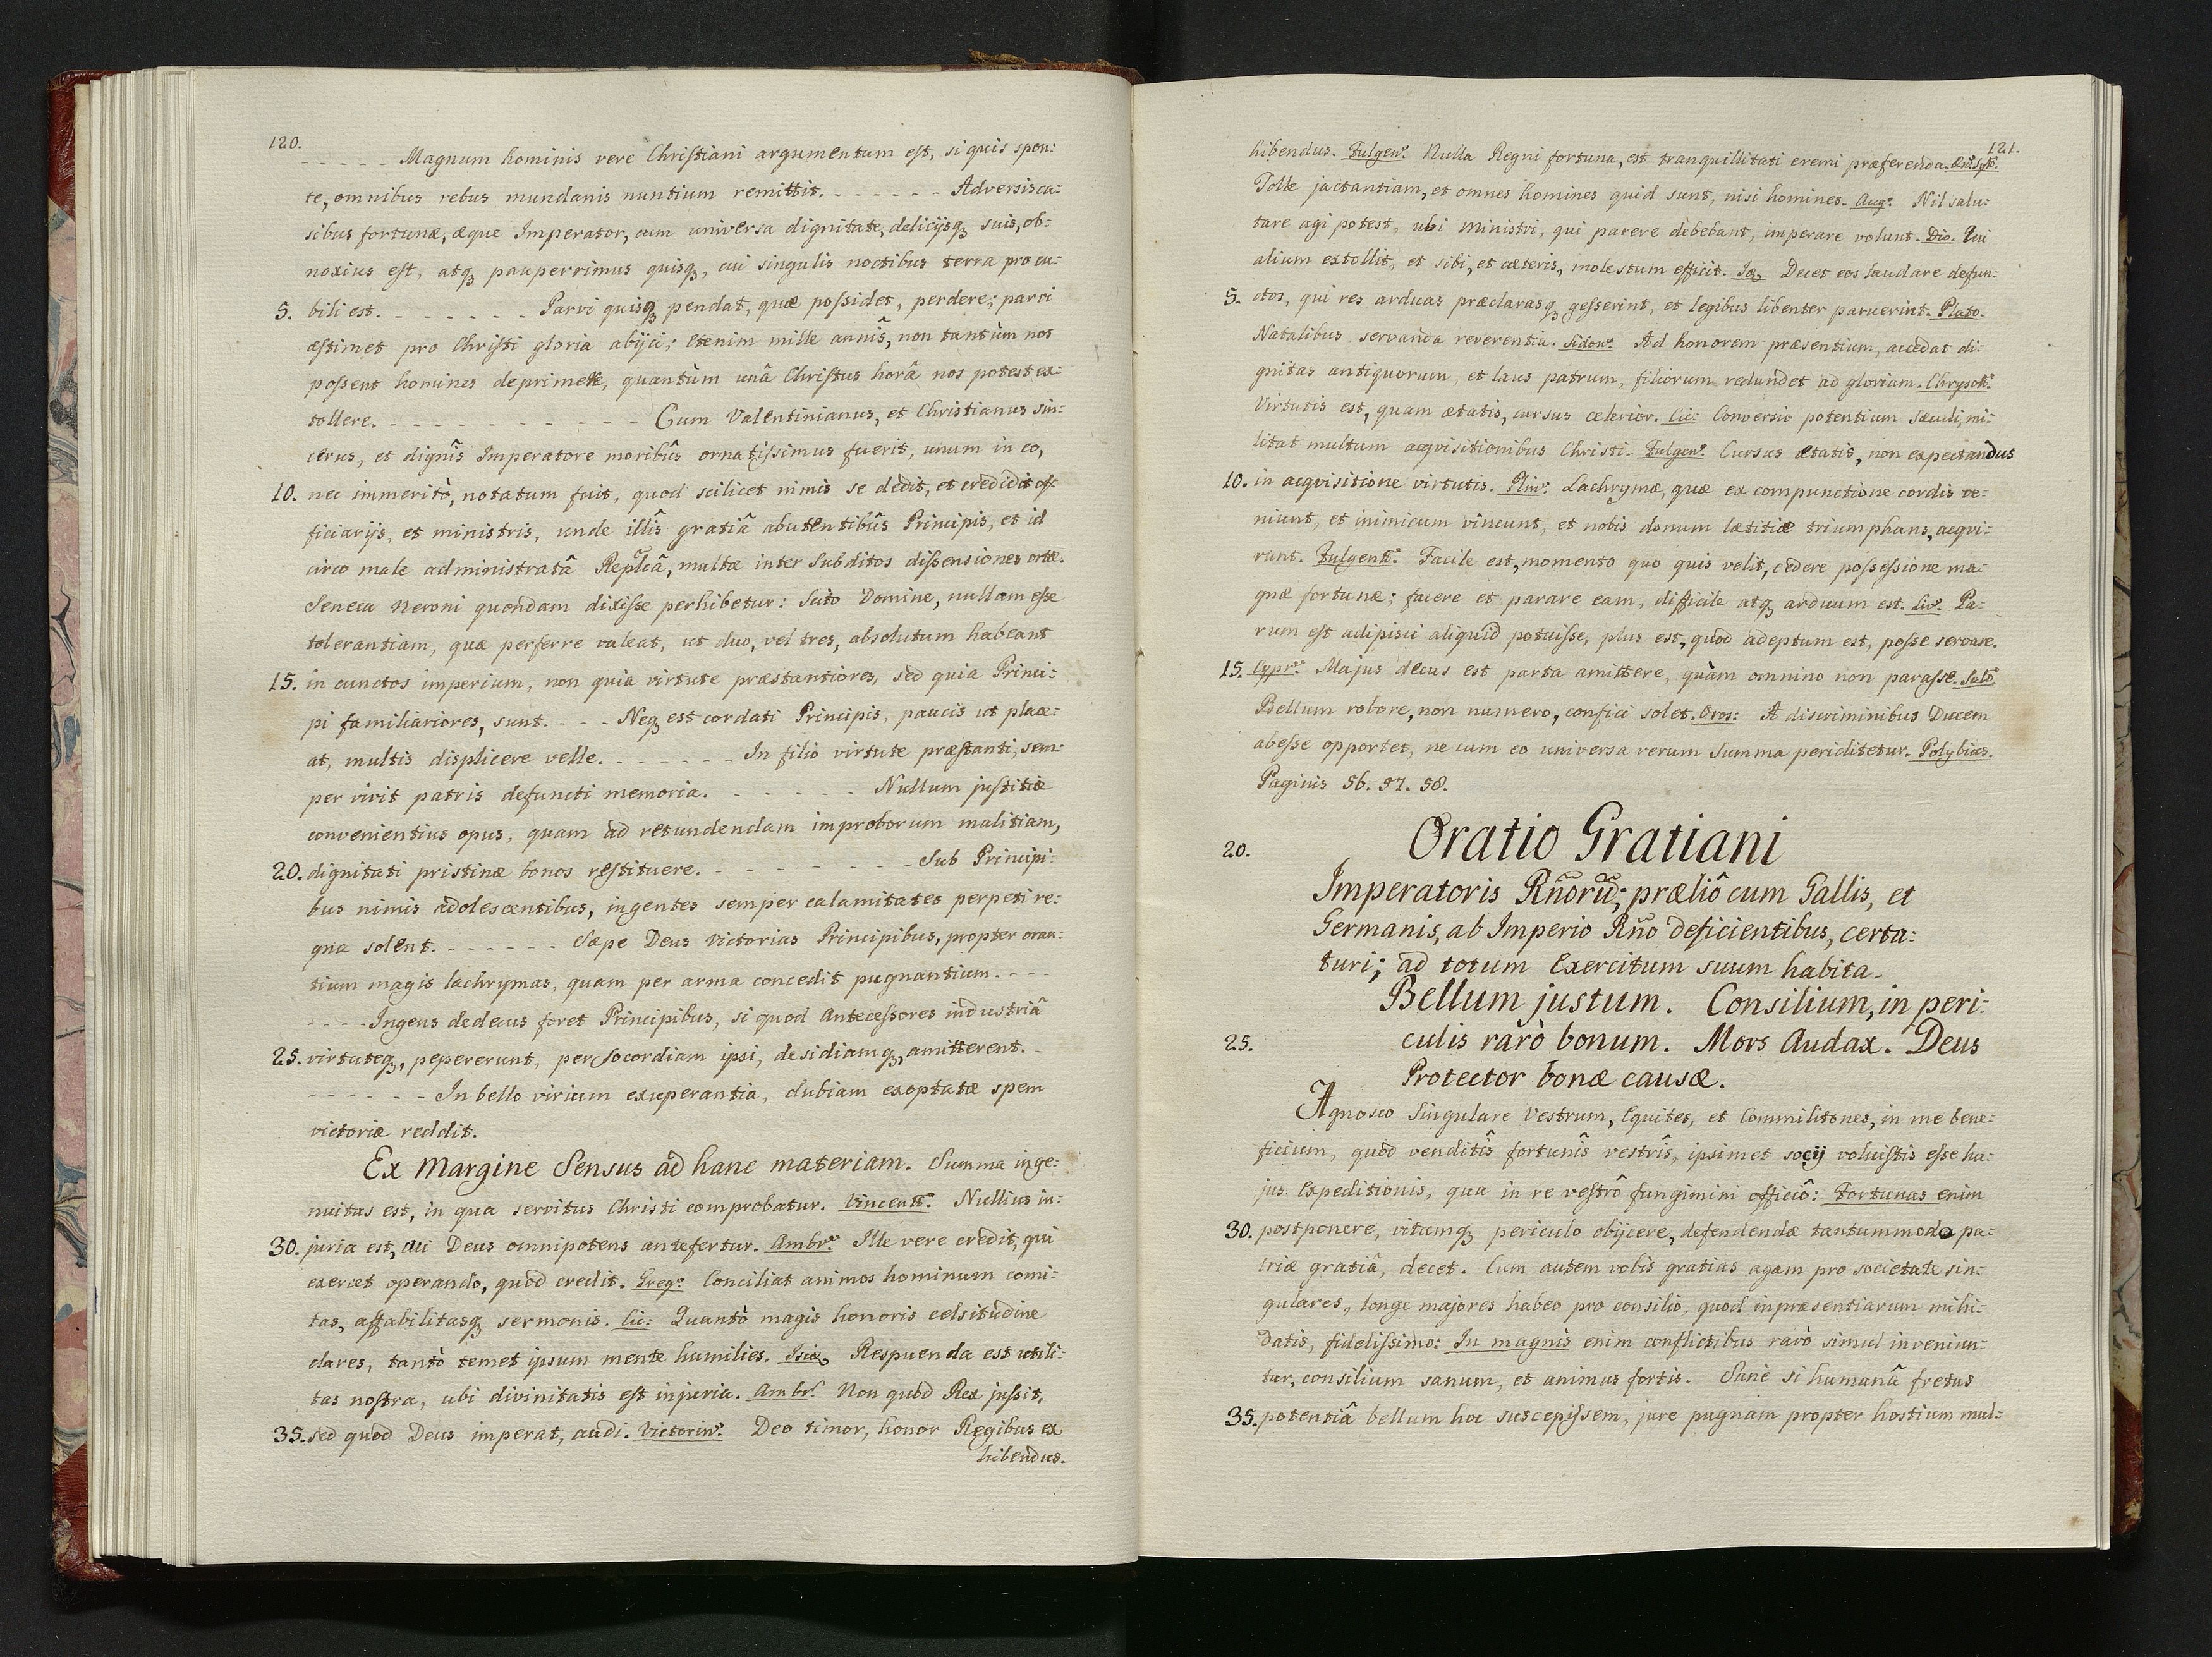 120.
- - - - - Magnum hominis vere Christiani argumentum est, si quis spon:
te, omnibus rebus mundanis nuntium remittit. - - - - - - Adversis ca:
sibus fortunæ, æque Imperator, cum universa dignitate, delicijsq3 suis, ob:
noxius est, atq3 pauperrimus quisq3, cui singulis noctibus terra pro cu:
5. bili est. - - - - - - - Parvi quisq3 pendat, quæ possidet, perdere; parvi
æstimet pro Christi gloria abijci; etenim mille annîs, non tantùm nos
possent homines deprimere, quantùm unâ Christus horâ nos potest ex:
tollere. - - - - - - - - - - - - Cum Valentinianus, et Christianus sin:
cerus, et dignîs Imperatore moribûs ornatissimus fuerit, unum in eo,
10. nec immeritò, notatum fuit, quod scilicet nimis se dedit, et credidit of:
ficiarijs, et ministris, unde illîs gratiâ abutentibûs Principis, et id
circo male administratâ Replcâ, multæ inter Subditos dissensiones ortæ.
Seneca Neroni quondam dixisse perhibetur: Scito Domine, nullam esse
tolerantiam, quæ perferre valeat, ut duo, vel tres, absolutum habeant
15. in cunctos imperium, non quia virtute præstantiores, sed quia Princi:
pi familiariores, sunt. - - - Neq3 est cordati Principis, paucis ut place:
at, multis displicere velle. - - - - - - - In filio virtute præstanti, sem:
per vivit patris defuncti memoria. - - - - - - Nullum justitiæ
convenientius opus, quam ad retundendam improborum malitiam,
20. dignitati pristinæ bonos restituere. - - - - - - Sub Principi:
bus nimis adolescentibus, ingentes semper calamitates perpeti re:
gna solent. - - - - - - Sæpe Deus Victorias Principibus, propter oran:
tium magis lachrymas, quam per arma concedit pugnantium. - - -
- - - - Ingens dedecus foret Principibus, si quod Antecessores industriâ
25. virtuteq3, pepererunt, per Socordiam ipsi, desidiamq3, amitterent. -
- - - - - - In bello virium exuperantia, dubiam exoptatæ spem
victoriæ reddit.
Ex Margine Sensus ad hanc materiam. Summa inge:
nuitas est, in qua servitus Christi comprobatur. Vincentio. Nullius in:
30. juria est, cui Deus omnipotens antefertur. Ambrs. Ille vere credit, qui
exercet operando, quod credit. Grego. Conciliat animos hominum comi:
tas, affabilitasq3 sermonis. Cic: Quantò magis honoris celsitudine
clares, tantò temet ipsum mente humilies. Isid. Respuenda est utili:
tas nostra, ubi divinitatis est injuria. Ambr. Non quòd Rex jussit,
35. sed quod Deus imperat, audi. Victorins. Deo timor, honor Regibus ex
hibendus.
121.
hibendus. Fulgens. Nulla Regni fortuna, est tranquillitati eremi præferenda.
Tolle jactantiam, et omnes homines quid sunt, nisi homines. Augo. Nil salu:
tare agi potest, ubi ministri, qui parere debebant, imperare volunt. Dio. Qui
alium extollit, et sibi, et cæteris, molestum efficit. Decet eos laudare defun:
5. ctos, qui res arduas præclarasq3 gesserint, et legibus libenter paruerint. Plato.
Natalibus servanda reverentia. Sidons. Ad honorem præsentium, accedat di:
gnitas antiquorum, et laus patrum, filiorum redundet ad gloriam. Chrysost.
Virtutis est, quam ætatis, cursus celerior. Cic: Conversio potentium Sæculi, mi:
litat multum acqvisitionibus Christi. Fulgens. Cursus ætatis, non expectandus
10. in acqvisitione virtutis. Plins. Lachrymæ, quæ ex compunctione cordis ve:
niunt, et inimicum vincunt, et nobis donum lætitiæ triumphans, acqvi:
runt. Fulgentio. Facile est, momento quo quis velit, cedere possessione ma:
gnæ fortunæ; facere et parare eam, difficile atq3 arduum est. Liv. Pa:
rum est adipisci aliquid potuisse, plus est, quod adeptum est, posse servare.
15. Cyprs. Majus decus est parta amittere, quàm omnino non parasse. Salo.
Bellum robore, non numero, confici solet. Oros: A discriminibus Ducem
abesse opportet, ne cum eo universa rerum Summa periclitetur. Polybius.
Paginis 56. 57. 58.
20. Oratio Gratiani
Imperatoris Rñorũ; præliô cum Gallis, et
Germanis, ab Imperio Rño deficientibus, certa:
turi; ad totum Exercitum suum habita.
Bellum justum. Consilium, in peri:
25. culis rarò bonum. Mors Audax. Deus
Protector bonæ causæ.
Agnosco Singulare Vestrum, Equites, et Commilitones, in me bene:
ficium, quòd venditîs fortunîs vestrîs, ipsimet socij voluistis esse hu:
jus Expeditionis, qua in re vestrô fungimini officiô: Fortunas enim
30. postponere, vitamq3 periculo obijcere, defendendæ tantummodo pa:
triæ gratiâ, decet. Cum autem vobis gratias agam pro societate sin:
gulares, longe majores habeo pro consilio, quod inpræsentiarum mihi:
datis, fidelissimo: In magnis enim conflictibus rarò simul inveniun:
tur, consilium sanum, et animus fortis. Sanè si humanâ fretus
35. potentiâ bellum hoc suscepissem, jure pugnam propter hostium mul: